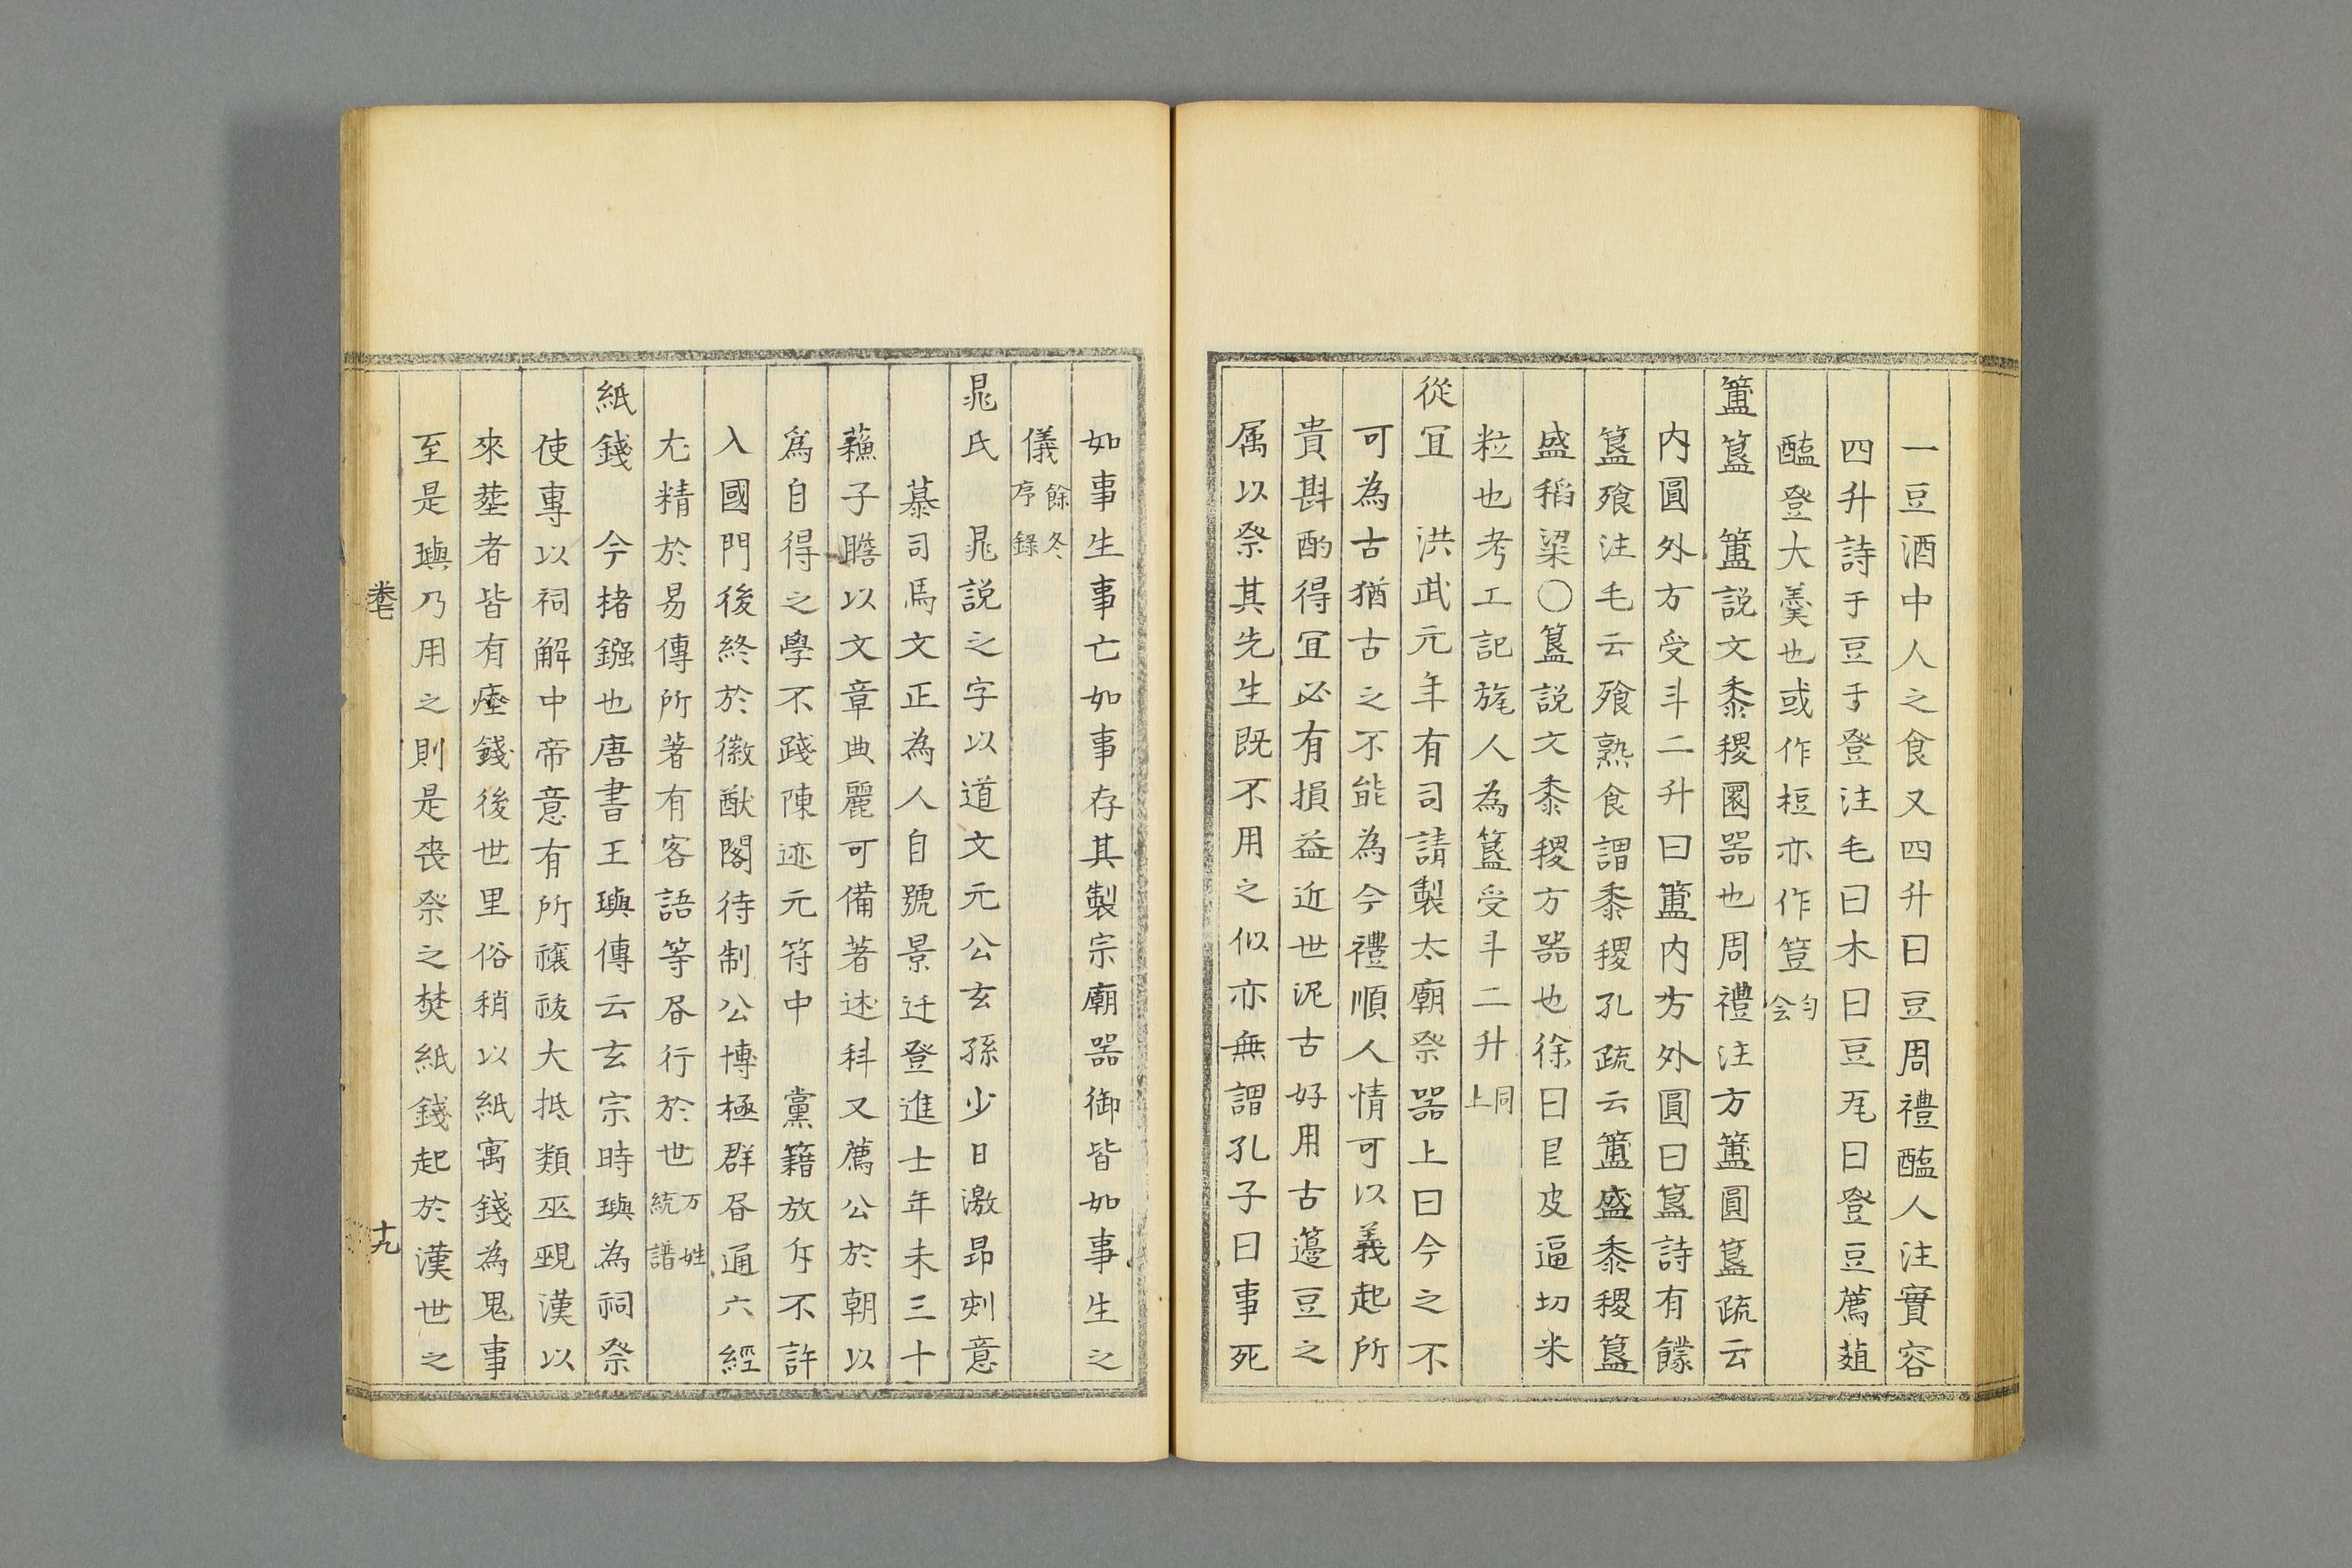 一豆酒中人之食又四升曰豆周禮醢人注實容
四升詩于豆于登注毛曰木曰豆瓦曰登豆薦菹
醢登大羹也或作梪亦作䇺勻会
簠簋　簠説文黍稷圜器也周禮注方簠圓簋疏云
内圓外方受斗二升曰簠内方外圓曰簋詩有饛
簋飱注毛云飱熟食謂黍稷孔疏云簠盛黍稷簋
盛稻粱〇簋説文黍稷方器也徐曰皀皮逼切米
粒也考工記旊人為簋受斗二升同上
從宜　洪武元年有司請製太廟祭器上曰今之不
可為古猶古之不能為今禮順人情可以義起所
貴斟酌得宜必有損益近世泥古好用古籩豆之
属以祭其先生既不用之似亦無謂孔子曰事死
如事生事亡如事存其製宗廟器御皆如事生之
儀餘冬序錄
晁氏　晁説之字以道文元公玄孫少日激昂刻意
慕司馬文正為人自號景迂登進士年未三十
蘓子瞻以文章典麗可備著述科又薦公於朝以
爲自得之學不踐陳迹元符中　黨籍放斥不許
入國門後終於徽猷閣待制公博極群昼通六經
尤精於易傳所著有客語等昼行於世万姓統譜
紙錢　今楮鏹也唐書王璵傳云玄宗時璵為祠祭
使專以祠解中帝意有所禳祓大抵類巫覡漢以
來塟者皆有瘞錢後世里俗稍以紙寓錢為鬼事
至是璵乃用之則是喪祭之焚紙錢起於漢世之
卷七
十九